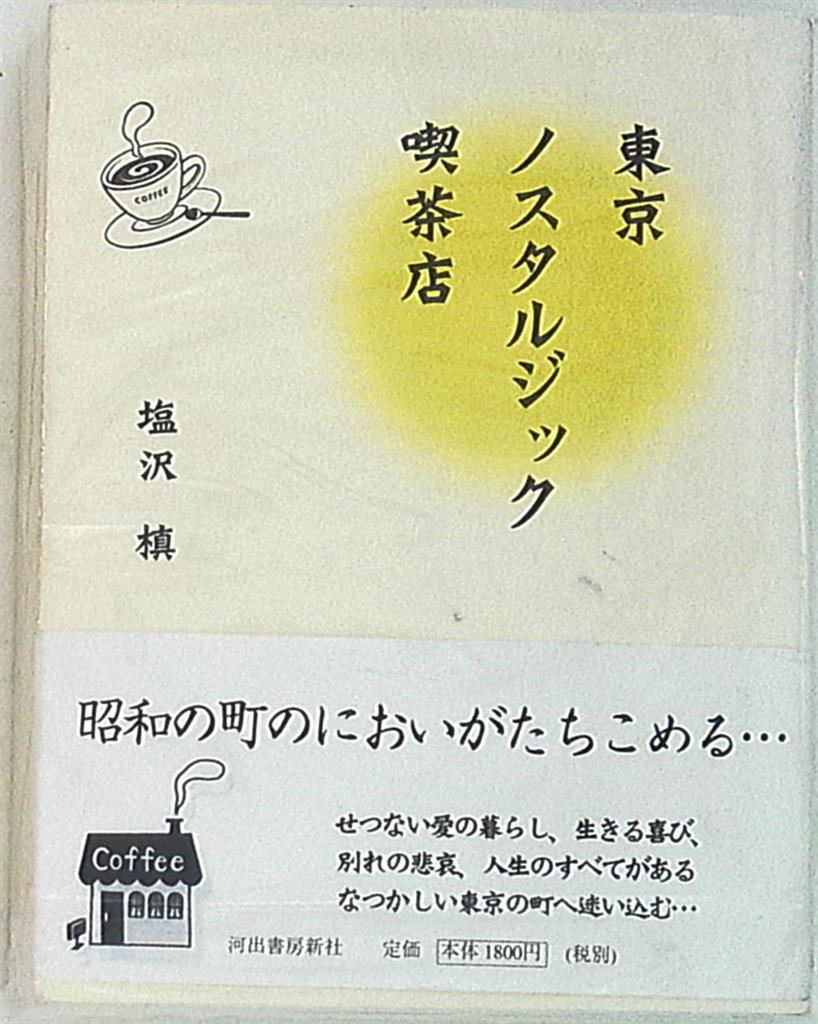 東京
ノスタルジック
喫茶店
COFFEE
塩沢 槙
昭和の町のにおいがたちこめる…
Coffee
せつない愛の暮らし、生きる喜び、
別れの悲哀、人生のすべてがある
なつかしい東京の町へ迷い込む…
河出書房新社 定価 本体1800円 (税別)